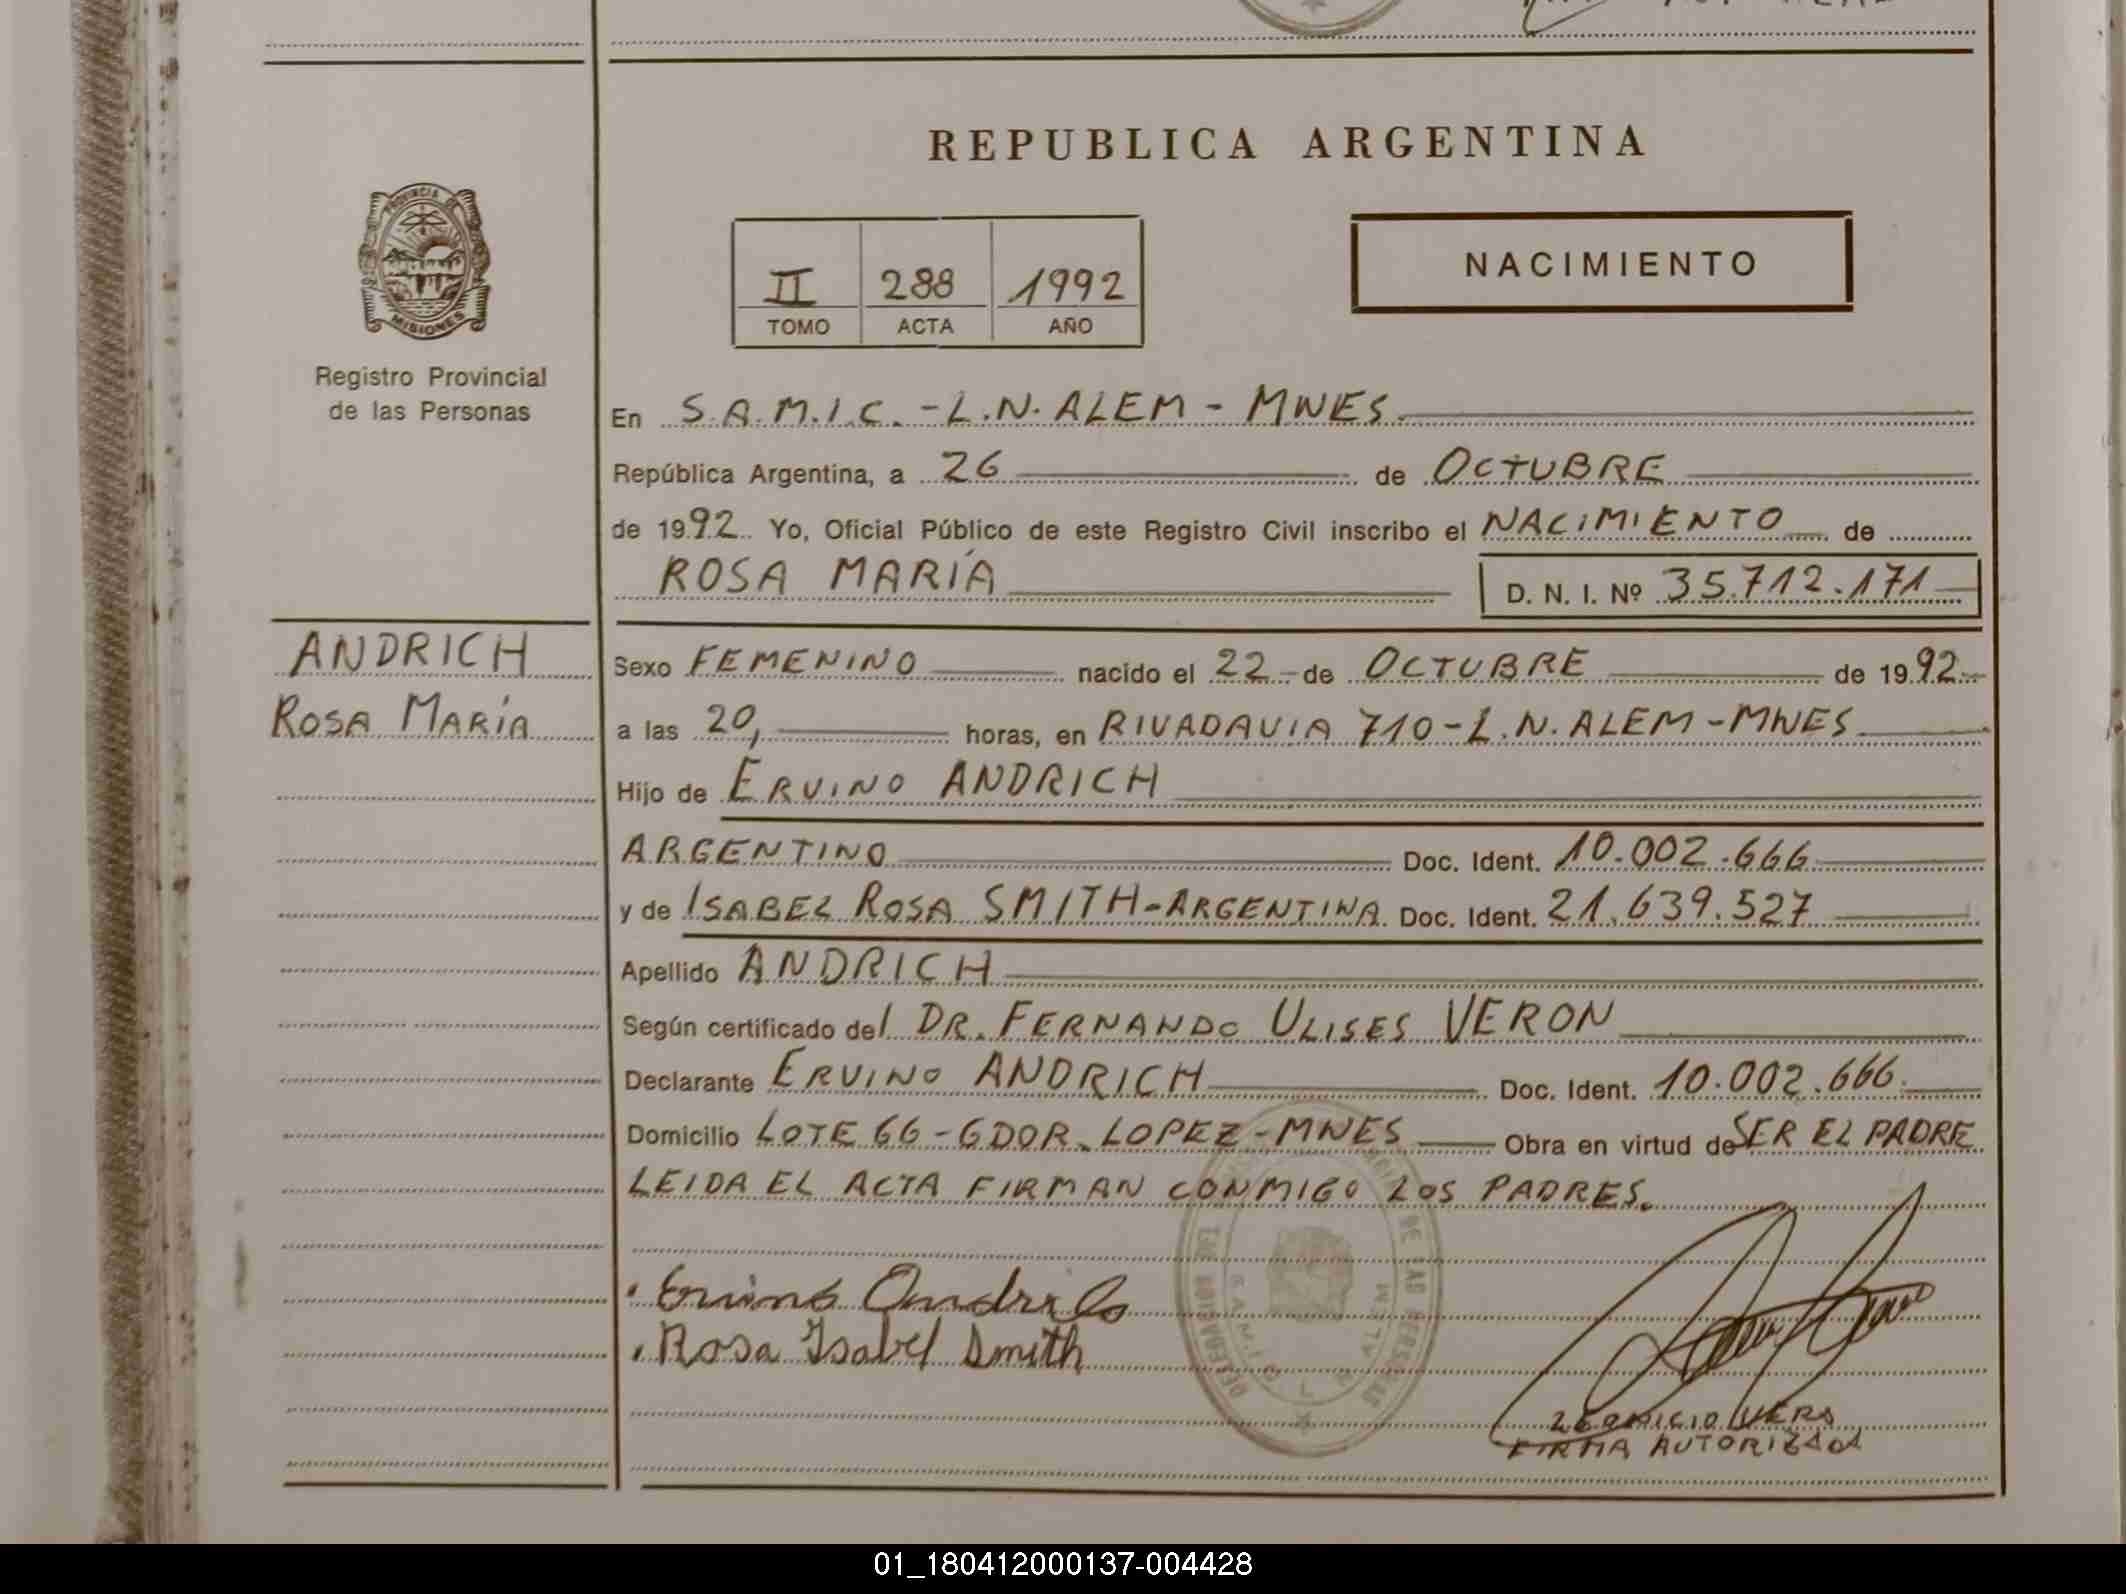 REPUBLICA ARGENTINA
PROVINCIA DE
MISIONES
Registro Provincial
de las Personas
II 288 1992
TOMO ACTA AÑO
NACIMIENTO
En S.A.M.I.C. - L.N. ALEM - MNES.
República Argentina, a 26 de OCTUBRE
de 1992. Yo, Oficial Público de este Registro Civil inscribo el NACIMIENTO de
ROSA MARÍA D. N. I. Nº 35.712.171
ANDRICH
ROSA MARÍA
Sexo FEMENINO nacido el 22 - de OCTUBRE de 1992
a las 20, horas, en RIVADAVIA 710 - L.N. ALEM - MNES
Hijo de ERVINO ANDRICH
ARGENTINO Doc. Ident. 10.002.666
y de ISABEL ROSA SMITH - ARGENTINA Doc. Ident. 21.639.527
Apellido ANDRICH
Según certificado del DR. FERNANDO ULISES VERON
Declarante ERVINO ANDRICH Doc. Ident. 10.002.666.
Domicilio LOTE 66 - GDOR. LOPEZ - MNES Obra en virtud de SER EL PADRE
LEIDA EL ACTA FIRMAN CONMIGO LOS PADRES.
Ervino Andrich
Rosa Isabel Smith
FIRMA AUTORIZADA
01_180412000137-004428